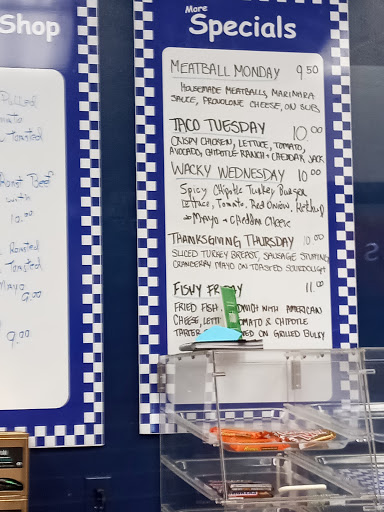 Shop
More
Specials
MEATBALL MONDAY 9 50
HOUSEMADE MEATBALLS, MARINARA
SAUCE, PROVOLONE CHEESE, ON SUB
TACO TUESDAY 10 00
CRISPY CHICKEN, LETTUCE, TOMATO,
AVOCADO, CHIPOTLE RANCH + CHEDDAR JACK
WACKY WEDNESDAY 10 00
Spicy Chipotle Turkey Burger
Lettuce, Tomato, Red Onion, Ketchup
+ Mayo + Cheddar Cheese
THANKSGIVING THURSDAY 10 00
SLICED TURKEY BREAST, SAUSAGE STUFFING
CRANBERRY MAYO ON TOASTED SOURDOUGH
FISHY 11 00
FRIED FISH WITH AMERICAN
CHEESE, & CHIPOTLE
ON GRILLED BULKY
Pulled
Toasted
Roast Beef
with
10.00
Roasted
Toasted
Mayo
9.00
9.00